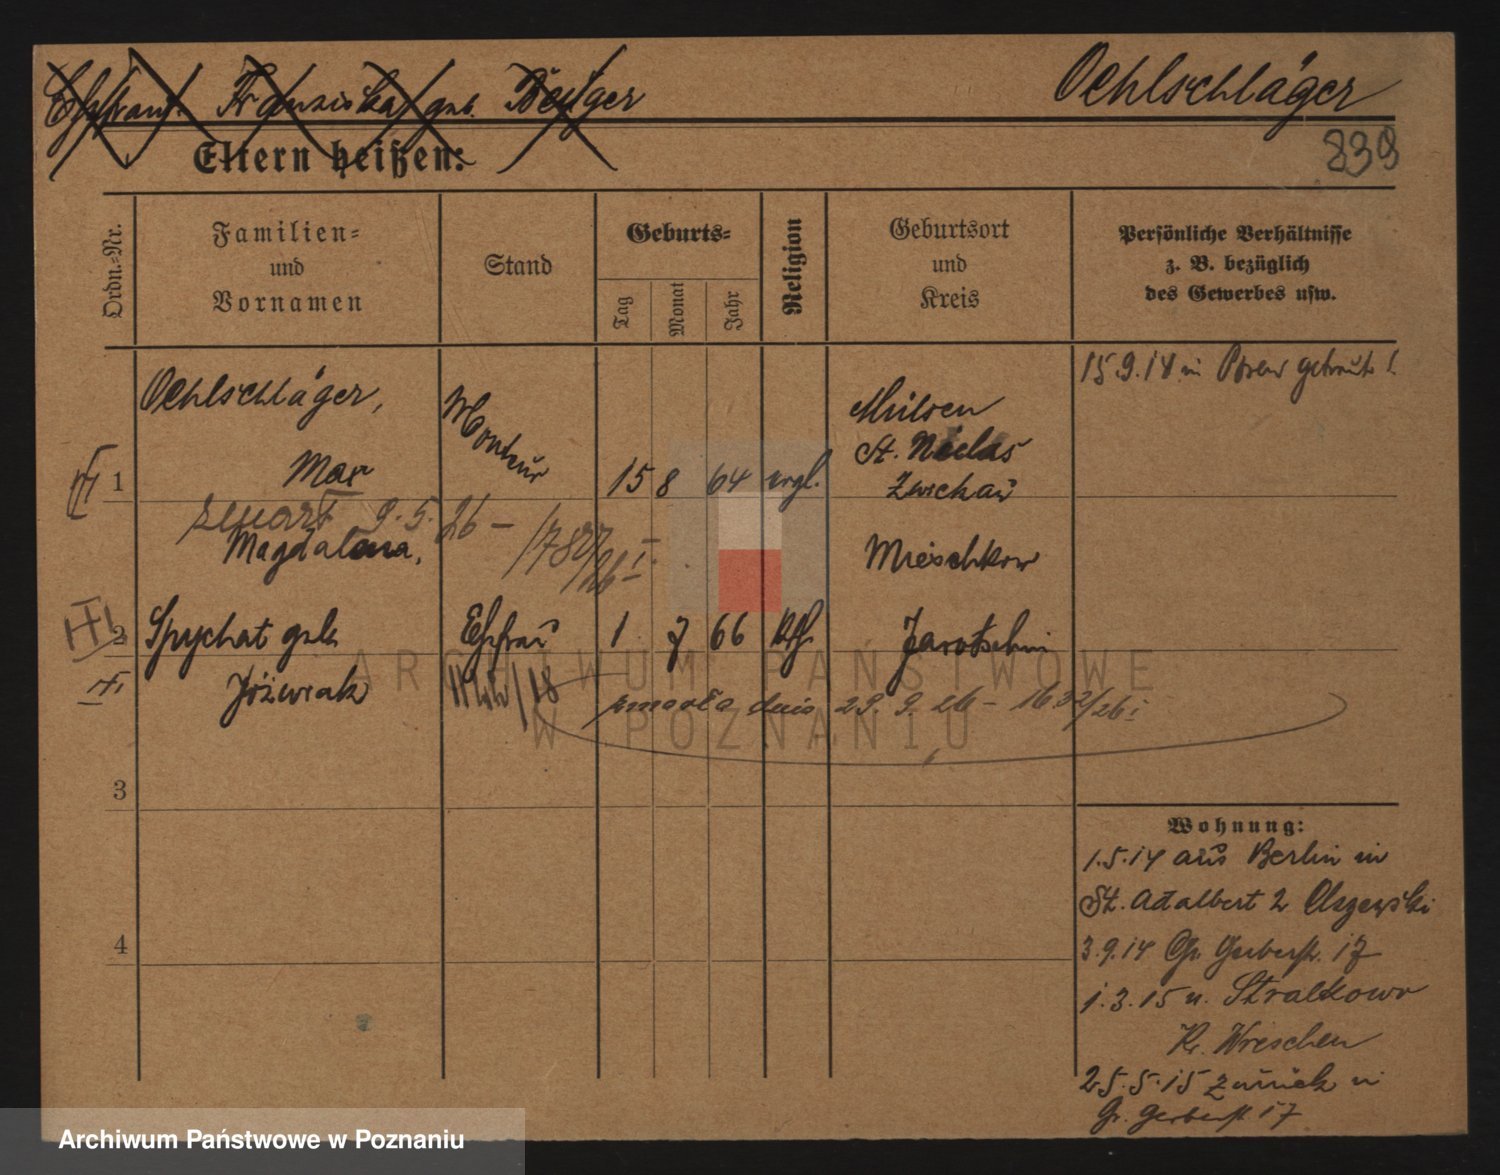 Ehefrau Franziska geb. Oehlschläger
Eltern heißen:
839
Ordn.-Nr.
Familien-
und
Vornamen
Stand
Geburts-
Tag
Monat
Jahr
Religion
Geburtsort
und
Kreis
Persönliche Verhältnisse
z. B. bezüglich
des Gewerbes usw.
15.9.14 in Posen getraut
1
Oehlschläger,
Max
Monteur
15 8 64 evgl.
Mülsen
St. Niclas
Zwickau
zmarł 9.5.26 -
Magdalena,
Mieschkow
2
Spychat geb.
Jóźwiak
Ehefrau
1 7 66 kth.
Jarotschin
zmarła dnia 29. 9. 26 - 1632/26 I
3
4
Wohnung:
1.5.14 aus Berlin in
St. Adalbert 2 Olszewski
3.9.14 Gr. Gerberstr. 17
1.3.15 n. Stralkowo
Kr. Wreschen
25.5.15 zurück in
Gr. Gerberstr. 17
ARCHIWUM PAŃSTWOWE
W POZNANIU
Archiwum Państwowe w Poznaniu